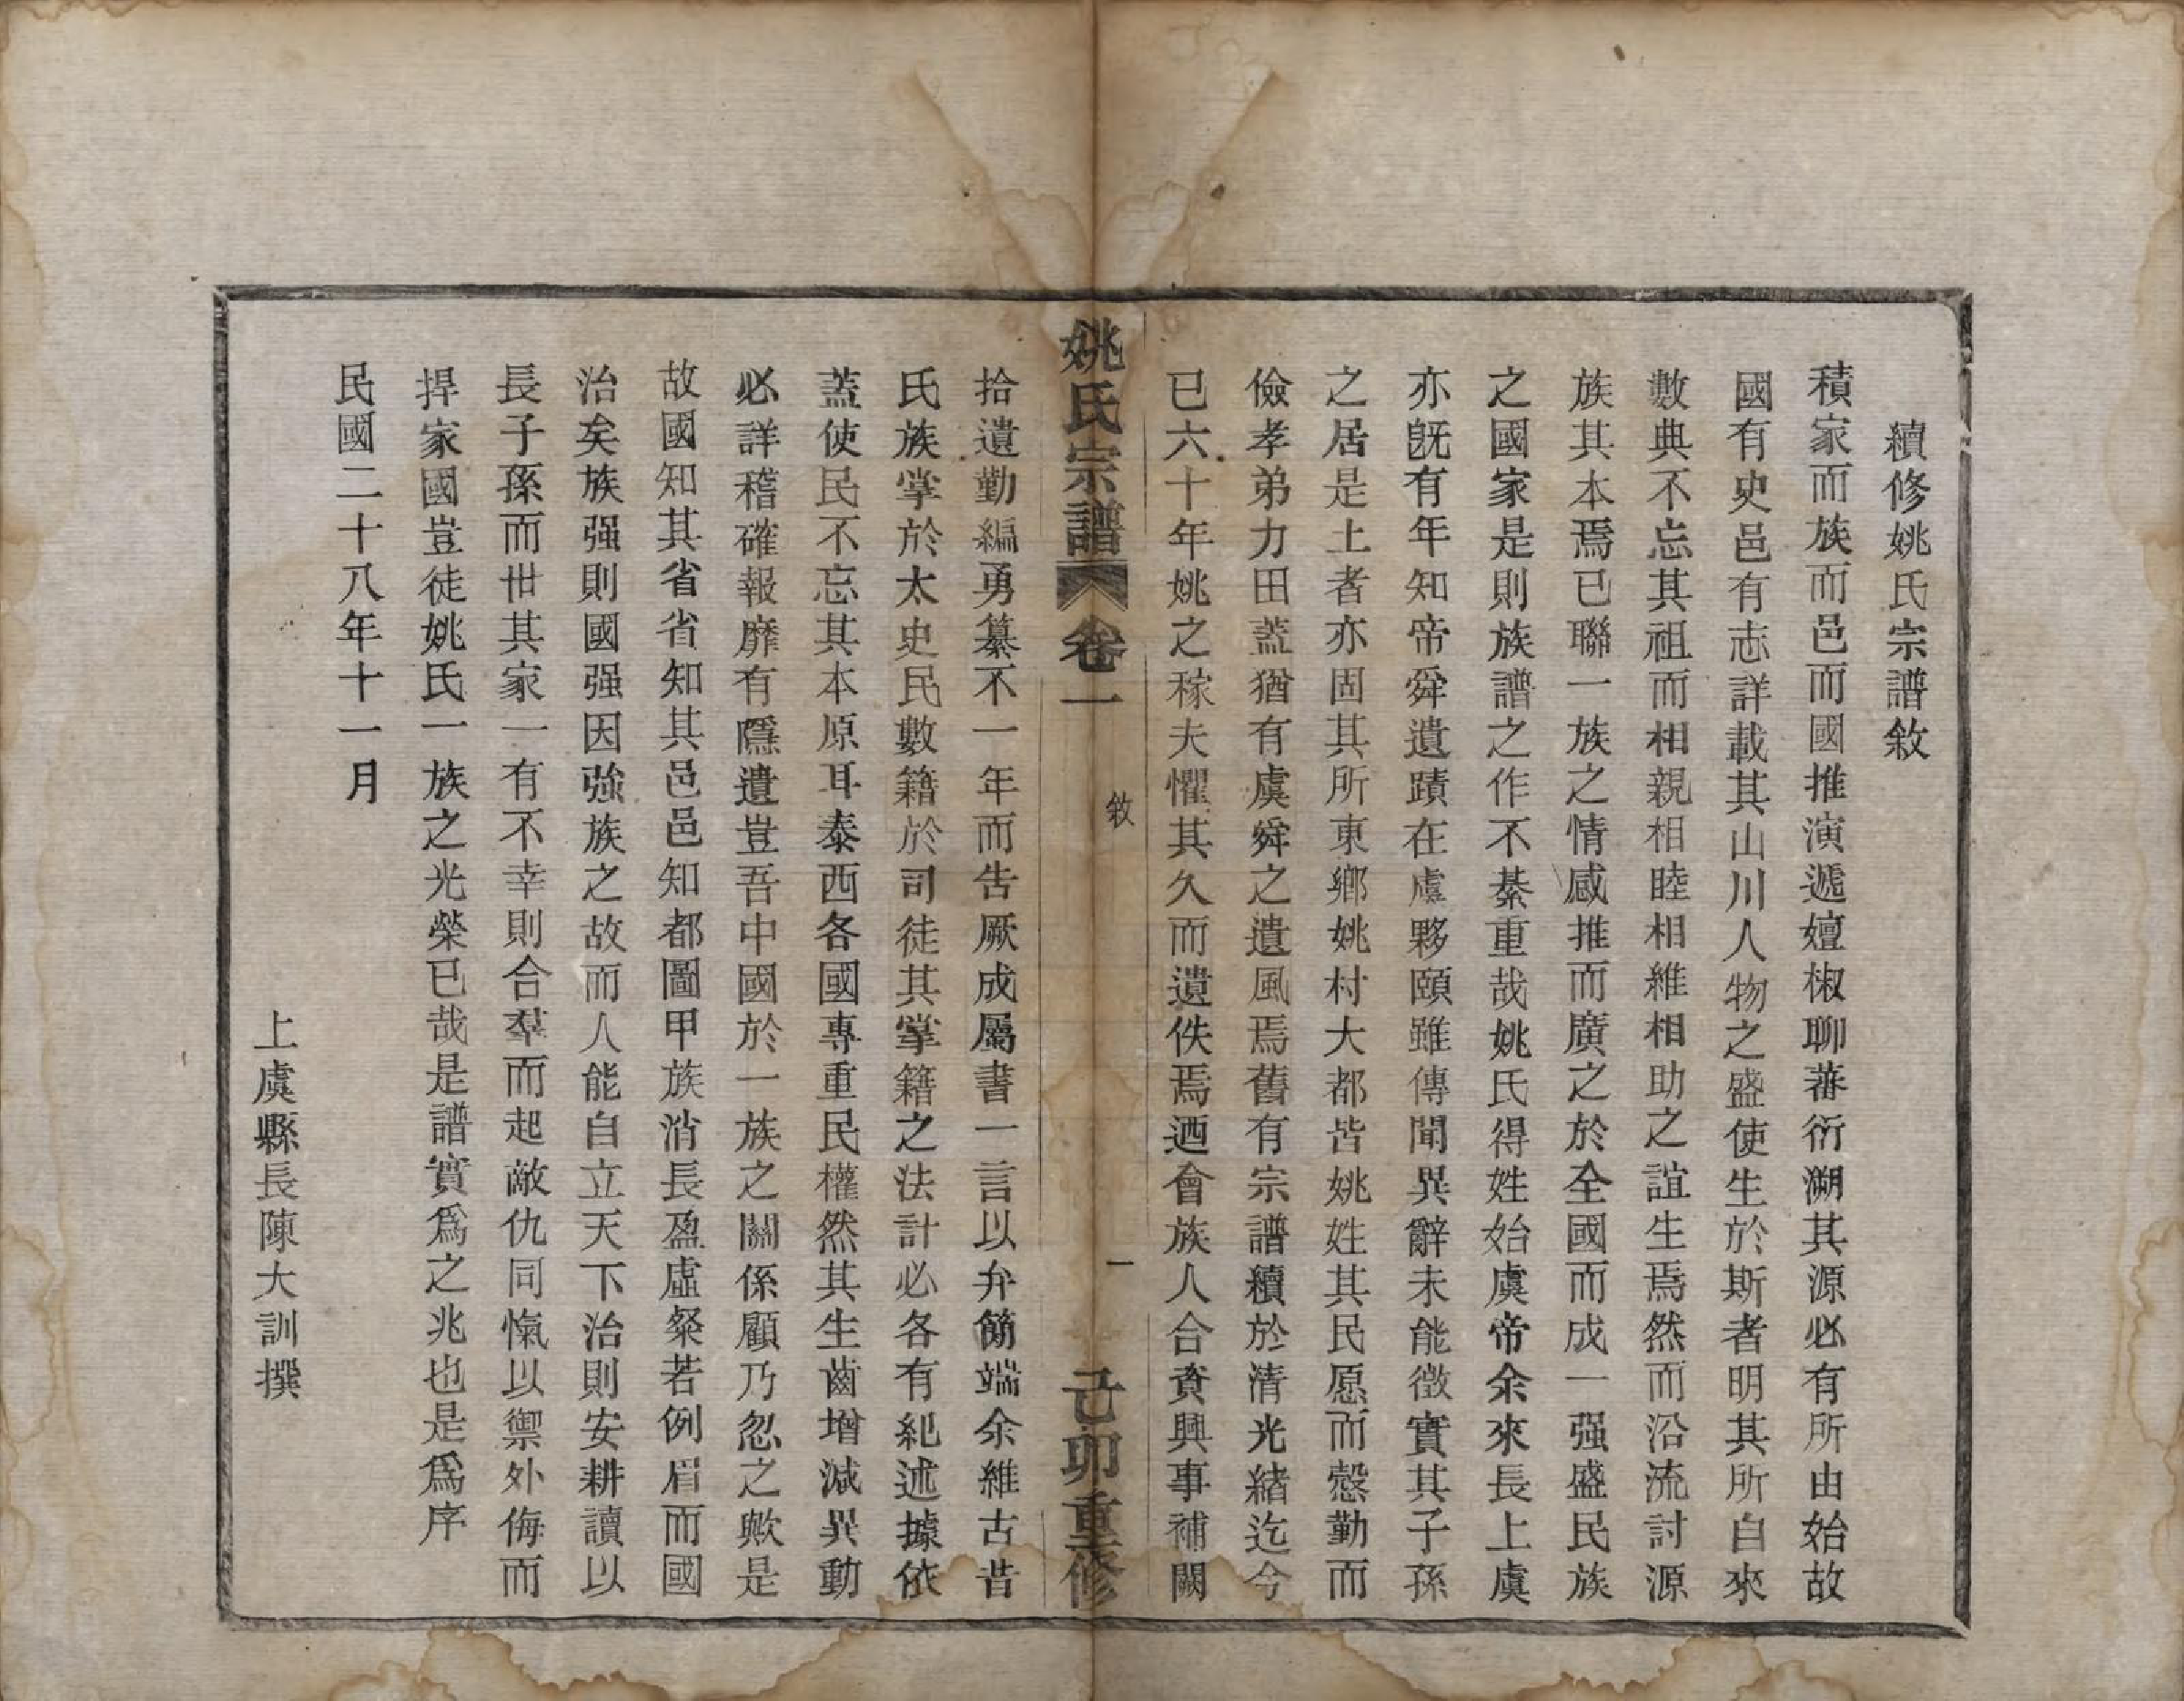 續修姚氏宗譜敘
積家而族而邑而國推演遞嬗椒聊蕃衍溯其源必有所由始故
國有史邑有志詳載其山川人物之盛使生於斯者明其所自來
數典不忘其祖而相親相睦相維相助之誼生焉然而沿流討源
族其本焉已聯一族之情感推而廣之於全國而成一强盛民族
之國家是則族譜之作不綦重哉姚氏得姓始虞帝余來長上虞
亦旣有年知帝舜遺蹟在虞夥頤雖傳聞異辭未能徵實其子孫
之居是土者亦固其所東鄉姚村大都皆姚姓其民愿而慤勤而
儉孝弟力田蓋猶有虞舜之遺風焉舊有宗譜續於清光緒迄今
已六十年姚之稼夫懼其久而遺佚焉迺會族人合資興事補闕
姚氏宗譜 卷一 敘 一 己卯重修
拾遺勤編勇纂不一年而告厥成屬書一言以弁簡端余維古昔
氏族掌於太史民數籍於司徒其掌籍之法計必各有紀述據依
蓋使民不忘其本原耳泰西各國專重民權然其生齒增減異動
必詳稽確報靡有隱遺豈吾中國於一族之關係顧乃忽之歟是
故國知其省省知其邑邑知都圖甲族消長盈虛粲若列眉而國
治矣族强則國强因強族之故而人能自立天下治則安耕讀以
長子孫而世其家一有不幸則合羣而起敵仇同愾以禦外侮而
捍家國豈徒姚氏一族之光榮已哉是譜實爲之兆也是爲序
民國二十八年十一月
上虞縣長陳大訓撰